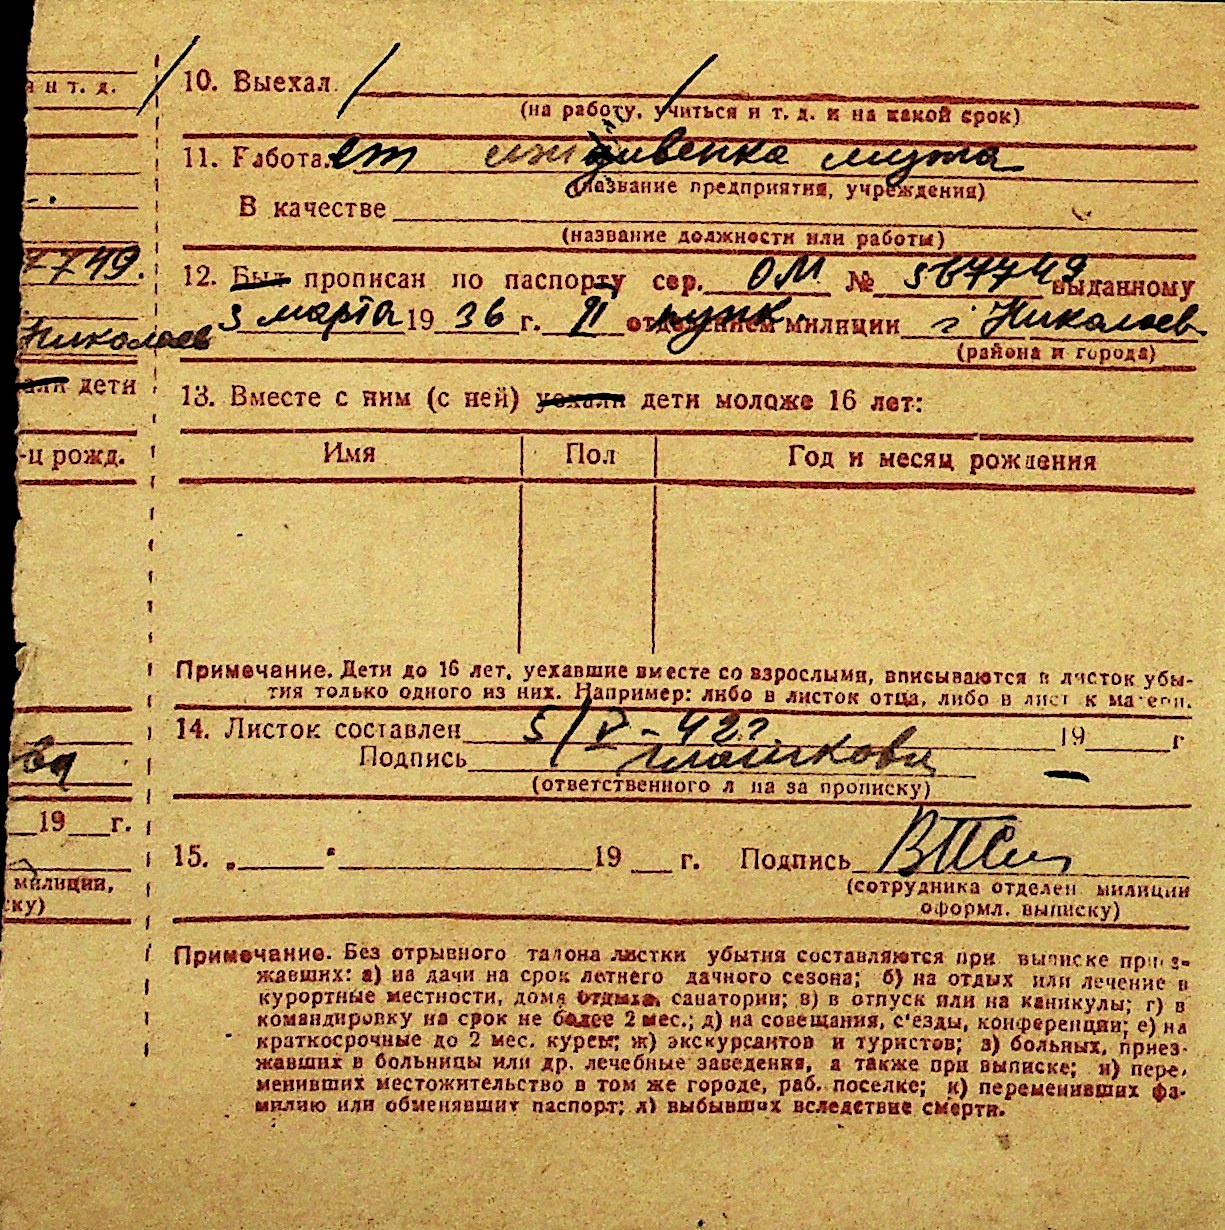 н т. д.
7749.
Николаев
дети
-ц рожд.
ва
19 г.
милиции,
ку)
10. Выехал
(на работу, учиться и т. д. и на какой срок)
11. Работает иждивенка мужа
(название предприятия, учреждения)
В качестве
(название должности или работы)
12. Был прописан по паспорту сер. ОМ № 567749 выданному
3 марта 1936 г. II пунк. отделением милиции г Николаев
(района и города)
13. Вместе с ним (с ней) уехали дети моложе 16 лет:
Имя Пол Год и месяц рождения
Примечание. Дети до 16 лет, уехавшие вместе со взрослыми, вписываются в листок убы-
тия только одного из них. Например: либо в листок отца, либо в лист к матери.
14. Листок составлен 5/V-42г. 19 г
Подпись
(ответственного л ца за прописку)
15. „ “ 19 г. Подпись
(сотрудника отделен милиции
оформл. выписку)
Примечание. Без отрывного талона листки убытия составляются при выписке приез-
жавших: а) на дачи на срок летнего дачного сезона; б) на отдых или лечение в
курортные местности, дома отдыха, санатории; в) в отпуск или на каникулы; г) в
командировку на срок не более 2 мес.; д) на совещания, с'езды, конференции; е) на
краткосрочные до 2 мес. курсы; ж) экскурсантов и туристов; з) больных, приез-
жавших в больницы или др. лечебные заведения, а также при выписке; и) пере-
менивших местожительство в том же городе, раб. поселке; к) переменивших фа-
милию или обменявших паспорт; л) выбывших вследствие смерти.